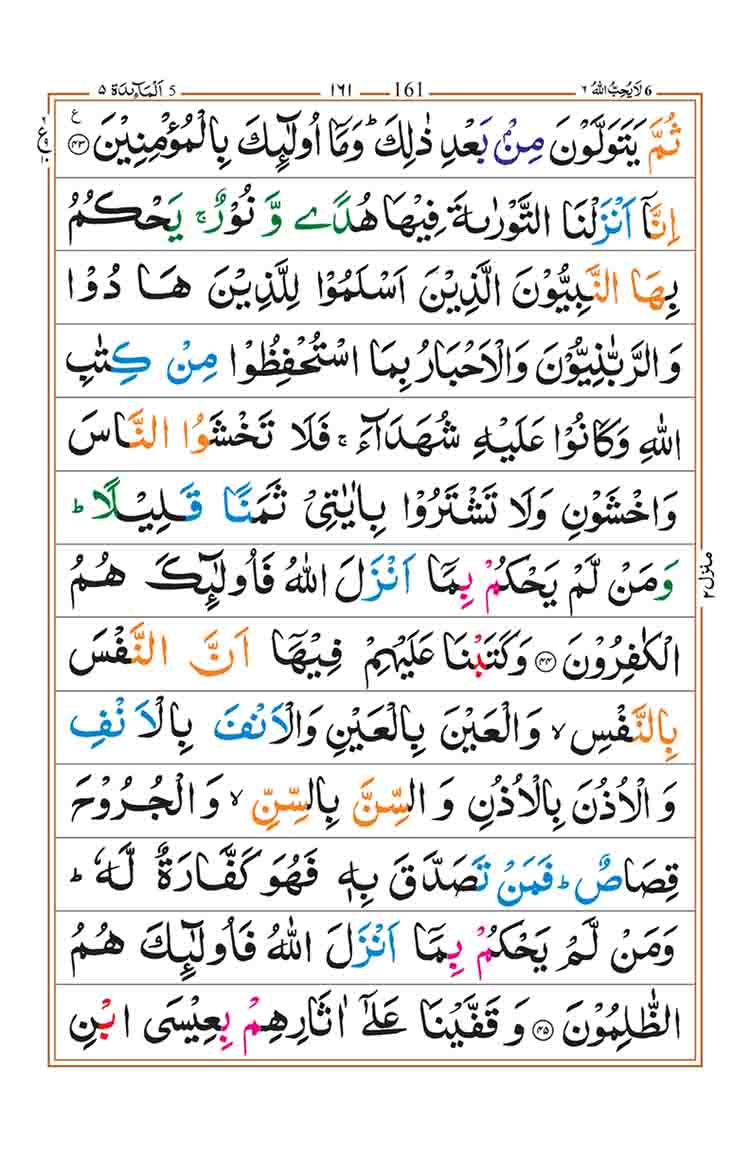 ٥ اَلْمَآىِٕدَة 5 ١٦١ 161 لَا يُحِبُّ اللّٰهُ ٦ 6
ثُمَّ يَتَوَلَّوْنَ مِنْۢ بَعْدِ ذٰلِكَ ؕ وَمَاۤ اُولٰٓئِكَ بِالْمُؤْمِنِيْنَ ﴿۴۳﴾ ع
اِنَّاۤ اَنْزَلْنَا التَّوْرٰىةَ فِيْهَا هُدًى وَّ نُوْرٌ ۚ يَحْكُمُ
بِهَا النَّبِيُّوْنَ الَّذِيْنَ اَسْلَمُوْا لِلَّذِيْنَ هَادُوْا
وَالرَّبّٰنِيُّوْنَ وَالْاَحْبَارُ بِمَا اسْتُحْفِظُوْا مِنْ كِتٰبِ
اللّٰهِ وَكَانُوْا عَلَيْهِ شُهَدَآءَ ۚ فَلَا تَخْشَوُا النَّاسَ
وَاخْشَوْنِ وَلَا تَشْتَرُوْا بِاٰيٰتِيْ ثَمَنًا قَلِيْلًا ؕ
وَمَنْ لَّمْ يَحْكُمْ بِمَاۤ اَنْزَلَ اللّٰهُ فَاُولٰٓئِكَ هُمُ
الْكٰفِرُوْنَ ﴿۴۴﴾ وَكَتَبْنَا عَلَيْهِمْ فِيْهَاۤ اَنَّ النَّفْسَ
بِالنَّفْسِ ۙ وَالْعَيْنَ بِالْعَيْنِ وَالْاَنْفَ بِالْاَنْفِ
وَالْاُذُنَ بِالْاُذُنِ وَالسِّنَّ بِالسِّنِّ ۙ وَالْجُرُوْحَ
قِصَاصٌ ؕ فَمَنْ تَصَدَّقَ بِهٖ فَهُوَ كَفَّارَةٌ لَّهٗ ؕ
وَمَنْ لَّمْ يَحْكُمْ بِمَاۤ اَنْزَلَ اللّٰهُ فَاُولٰٓئِكَ هُمُ
الظّٰلِمُوْنَ ﴿۴۵﴾ وَقَفَّيْنَا عَلٰۤى اٰثَارِهِمْ بِعِيْسَى ابْنِ
منزل ٢